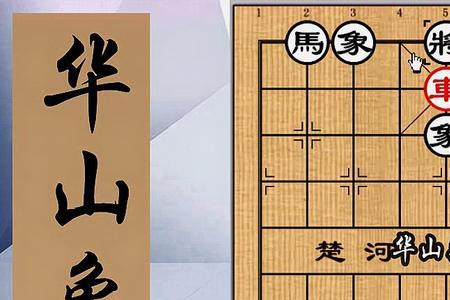 华
山
象
1 2 3 4 5
馬 象 將
車
象
楚 河 华山